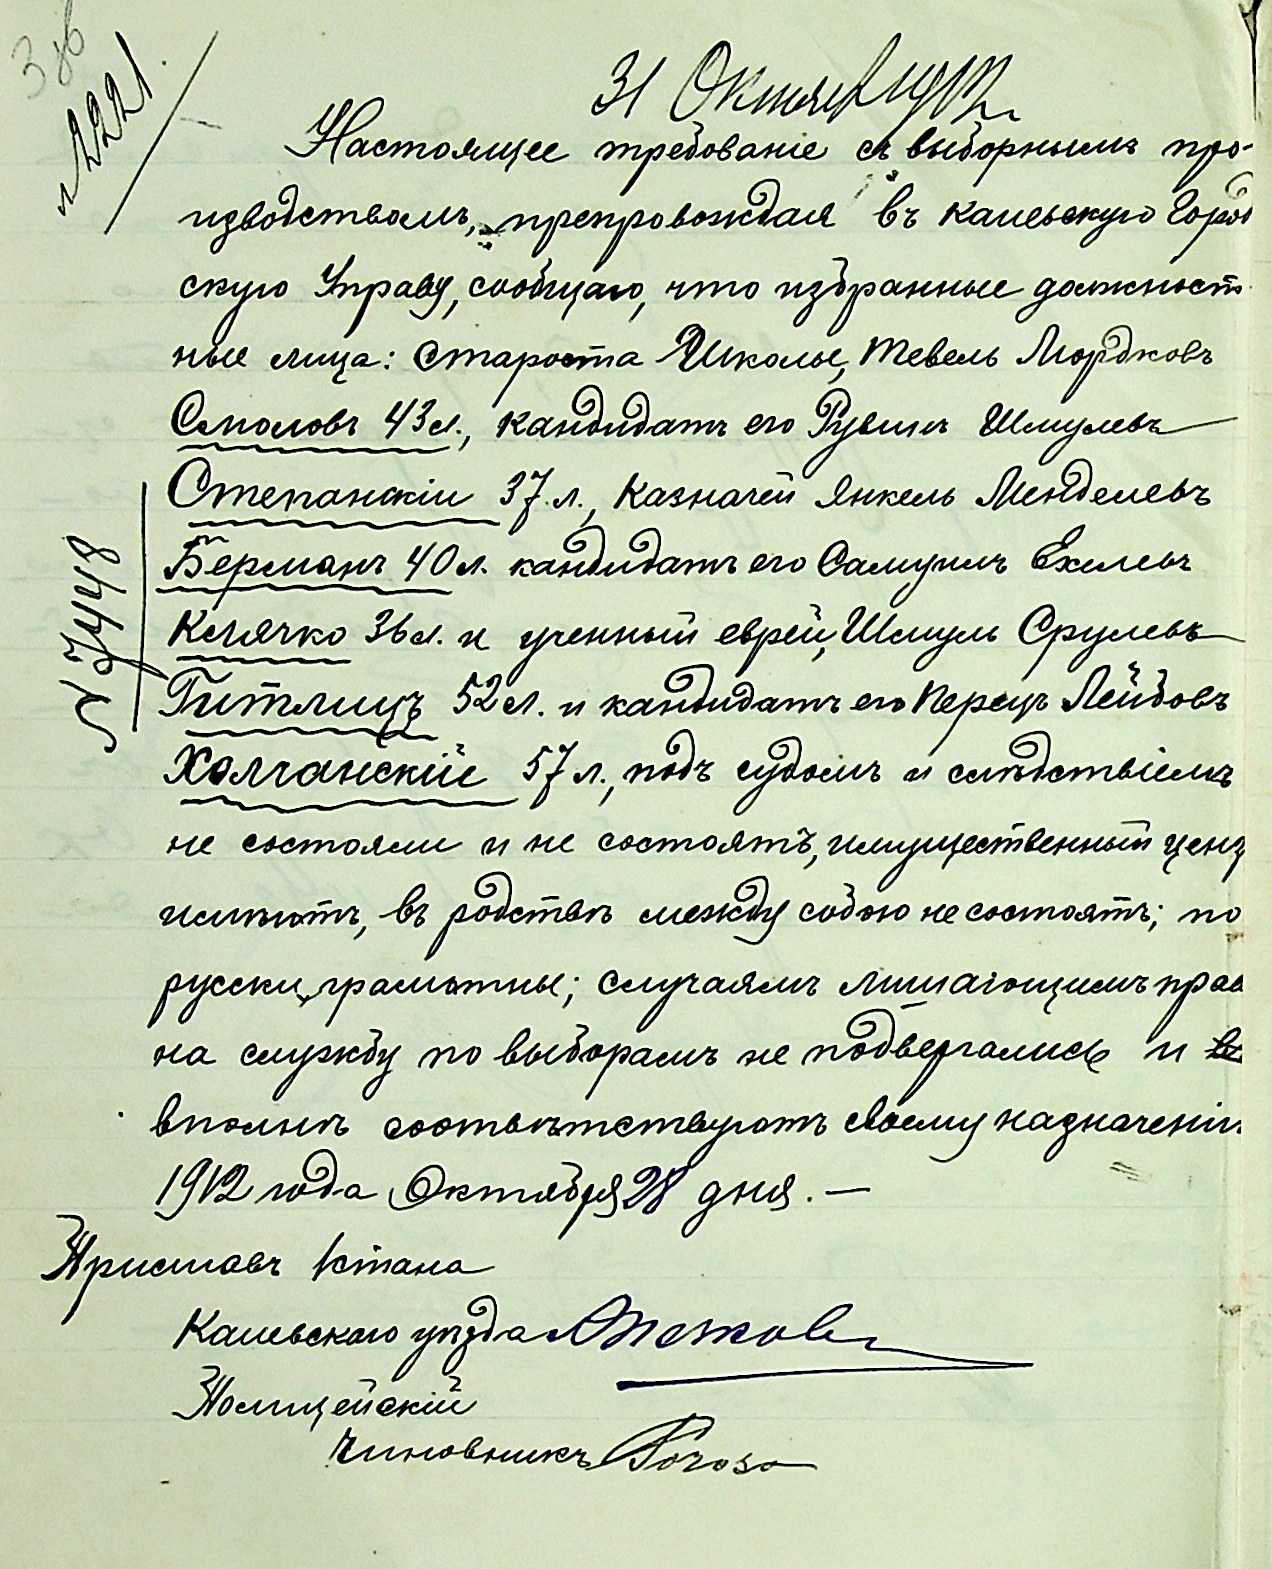 31 Октября 1912 г.
№ 2221.
Настоящее требованіе съ выборнымъ про-
изводствомъ, препровождая въ Каневскую Город
скую Управу, сообщаю, что избранные должност
ные лица: Староста Школы, Тевель Мордковъ
Смоловъ 43 л., кандидатъ его Рувинъ Шмулевъ
Степанскій 37 л., Казначей Янкель Менделевъ
Берманъ 40 л. кандидатъ его Самуилъ Ехилевъ
Клячко 36 л. и ученный еврей, Шмуль Срулевъ
Гитлицъ 52 л. и кандидатъ его Перецъ Лейбовъ
Холчанскій 57 л., подъ судомъ и слѣдствіемъ
не состояли и не состоятъ, имущественный ценз
имѣютъ, въ родствѣ между собою не состоятъ; по
русски грамотны; случаямъ лишающимъ прав
на службу по выборамъ не подвергались и
вполнѣ соотвѣтствуютъ своему назначенію.
1912 года Октября 28 дня. —
№ 7448
Приставъ 1 стана
Каневскаго уѣзда
Полицейскій
чиновникъ Рогоза